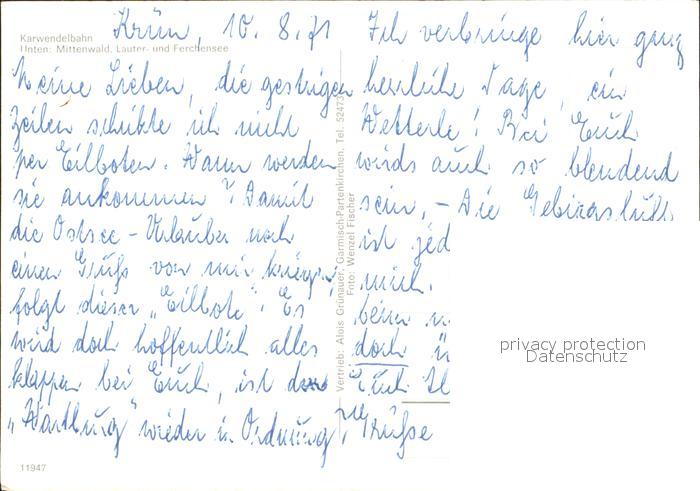 Karwendelbahn
Unten: Mittenwald, Lauter- und Ferchensee
Krün, 10. 8. 71
Meine Lieben, die gestrigen
Zeilen schickte ich nicht
per Eilboten. Wann werden
sie ankommen? Damit
die Ostsee-Urlauber noch
einen Gruß von mir kriegen,
folgt dieser "Eilbote". Es
wird doch hoffentlich alles
klappen bei Euch, ist der
"Wartburg" wieder in Ordnung?
Vertrieb: Alois Grünauer, Garmisch-Partenkirchen, Tel. 52473
Foto: Wenzel Fischer
Ich verbringe hier ganz
herrliche Tage, ein
Wetterle! Bei Euch
wirds auch so blendend
sein, - Die Gebirgsluft
ist jed
mich.
beim
doch
Euch
Grüße
privacy protection
Datenschutz
11947